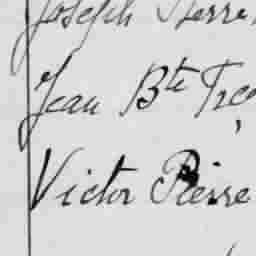 Joseph Pierre
Jean Bte
Victor Pierre